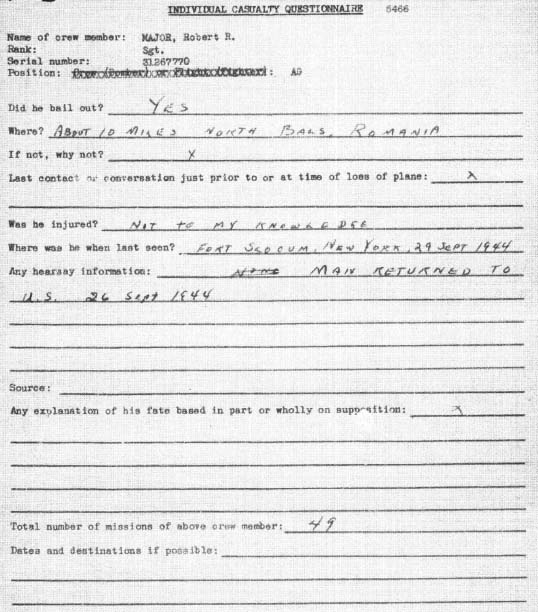 INDIVIDUAL CASUALTY QUESTIONNAIRE 5466
Name of crew member: MAJOR, Robert R.
Rank: Sgt.
Serial number: 31267770
Position: Crew (Bomber) or Flight (Fighter): AG
Did he bail out? YES
Where? ABOUT 10 MILES NORTH BALS, ROMANIA
If not, why not? X
Last contact or conversation just prior to or at time of loss of plane: X
Was he injured? NOT TO MY KNOWLEDGE
Where was he when last seen? FORT SLOCUM, NEW YORK, 29 SEPT 1944
Any hearsay information: NONE MAN RETURNED TO
U.S. 26 Sept 1944
Source:
Any explanation of his fate based in part or wholly on supposition: X
Total number of missions of above crew member: 49
Dates and destinations if possible: